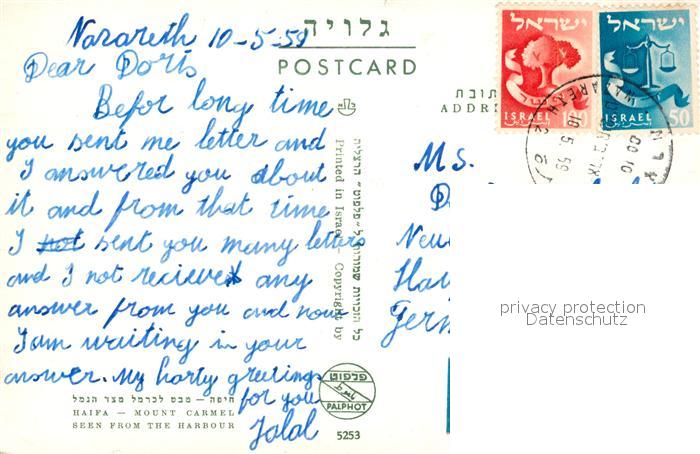 Nazareth 10-5-59
גלויה
POSTCARD
Dear Doris
Befor long time
you sent me letter and
I answered you about
it and from that time
I not sent you many letters
and I not recieve any
answer from you and now
I am waiting in your
answer. My harty greetings
for you
Jalal
חיפה — מבט לכרמל מצד הנמל
HAIFA — MOUNT CARMEL
SEEN FROM THE HARBOUR
פלפוט
PALPHOT
5253
Printed in Israel — Copyright by
כל הזכויות שמורות ל"פלפוט" הרצליה
תובת
ADDR
ישראל
ISRAEL
ישראל
ISRAEL 50
NAZARETH
10.5.59
MS.
Neu
Ha
Germ
privacy protection
Datenschutz